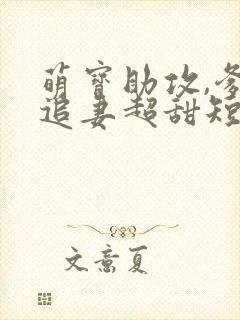 萌宝助攻,爹
追妻超甜短
文意夏